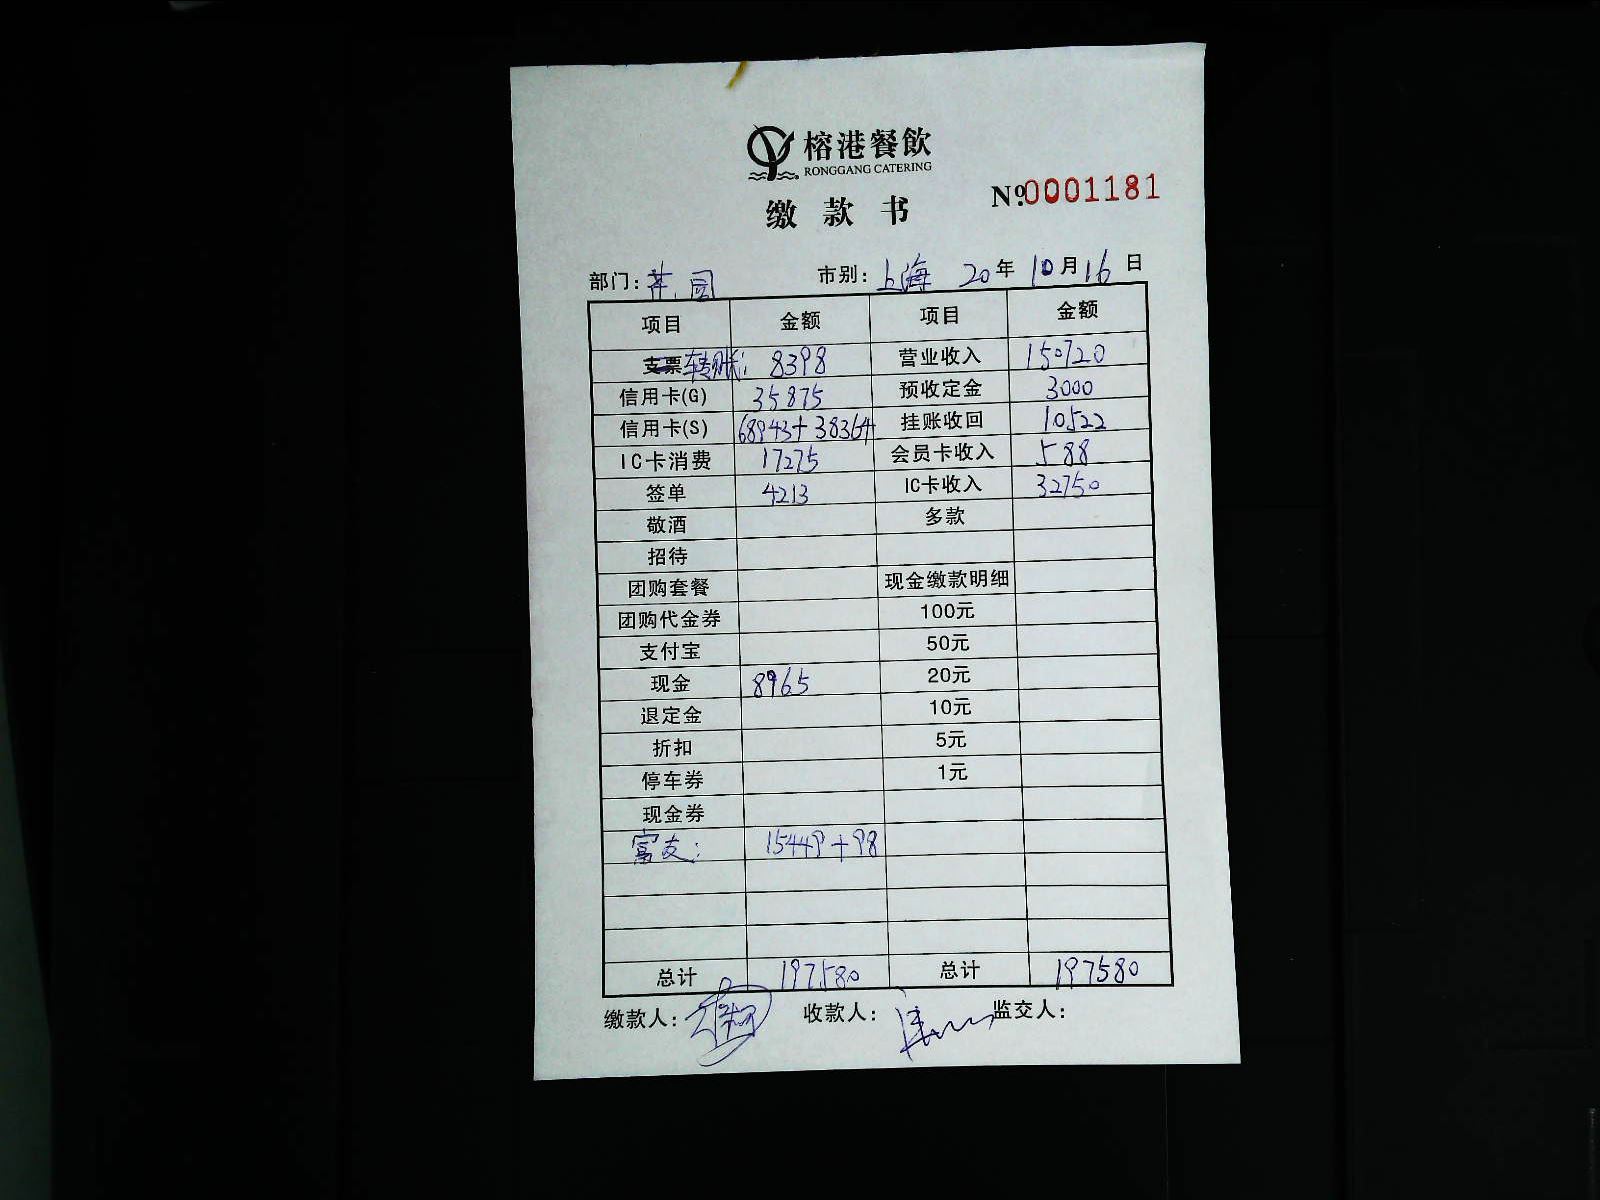 榕港餐飲
RONGGANG CATERING
缴款书
Nº 0001181
部门: 市别: 上海 20年10月16日
项目 金额 项目 金额
支票 转账: 8398 营业收入 150720
信用卡(G) 35875 预收定金 3000
信用卡(S) 68943+38364 挂账收回 10522
IC卡消费 17275 会员卡收入 588
签单 4213 IC卡收入 32750
敬酒 多款
招待
团购套餐 现金缴款明细
团购代金券 100元
支付宝 50元
现金 8965 20元
退定金 10元
折扣 5元
停车券 1元
现金券
富友: 15449+98
总计 197580 总计 197580
缴款人: 收款人: 监交人: